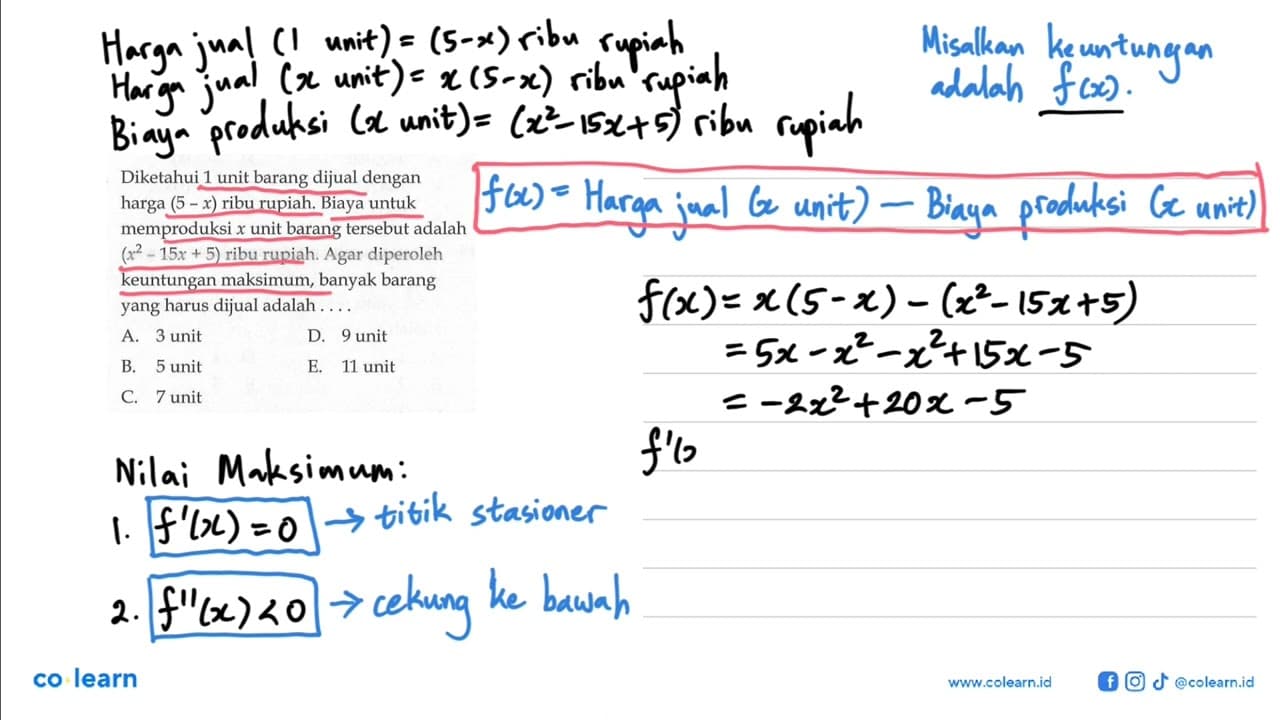 Harga jual (1 unit) = (5-x) ribu rupiah
Harga jual (x unit) = x(5-x) ribu rupiah
Biaya produksi (x unit) = (x²-15x+5) ribu rupiah
Misalkan keuntungan
adalah f(x).
Diketahui 1 unit barang dijual dengan
harga (5 – x) ribu rupiah. Biaya untuk
memproduksi x unit barang tersebut adalah
(x² – 15x + 5) ribu rupiah. Agar diperoleh
keuntungan maksimum, banyak barang
yang harus dijual adalah . . . .
A. 3 unit D. 9 unit
B. 5 unit E. 11 unit
C. 7 unit
f(x) = Harga jual (x unit) – Biaya produksi (x unit)
f(x) = x(5-x) - (x²-15x+5)
= 5x - x² - x² + 15x - 5
= -2x² + 20x - 5
f'(
Nilai Maksimum:
1. f'(x) = 0 → titik stasioner
2. f''(x) < 0 → cekung ke bawah
co learn
www.colearn.id
@colearn.id